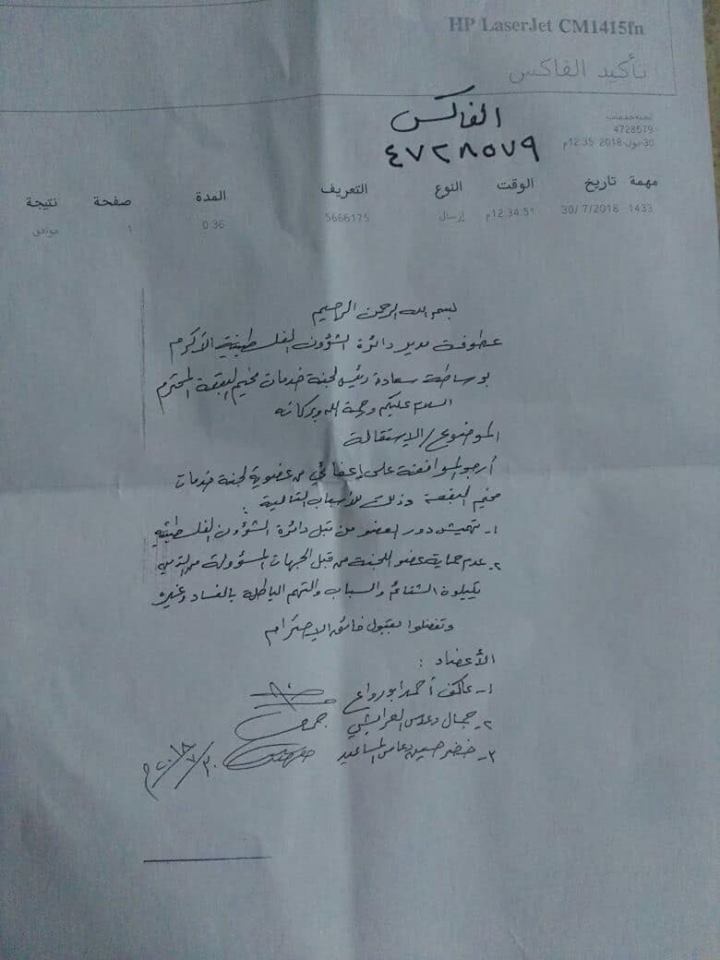 HP LaserJet CM1415fn
تأكيد الفاكس
الفاكس
٤٧٢٨٥٧٩
4728579
30-يول-2018 12:35م
مهمة تاريخ الوقت النوع التعريف المدة صفحة نتيجة
1433 30/ 7/2018 12:34:51م إرسال 5666175 0:36 1 موافق
بسم الله الرحمن الرحيم
عطوفة مدير دائرة الشؤون الفلسطينية الأكرم
بوساطة سعادة رئيس لجنة خدمات مخيم البقعة المحترم
السلام عليكم ورحمة الله وبركاته
الموضوع/ الاستقالة
أرجو الموافقة على إعفائي من عضوية لجنة خدمات
مخيم البقعة وذلك للأسباب التالية :
١- تهميش دور العضو من قبل دائرة الشؤون الفلسطينية
٢- عدم حماية عضو اللجنة من قبل الجهات المسؤولة من الذين
يكيلون الشتائم والسباب والتهم الباطلة بالفساد وغيره
وتفضلوا بقبول فائق الاحترام
الأعضاء :
١- عاكف أحمد ابو رواع
٢- جمال دعاس العرايشي
٣- خضر حسين دعاس المساعيد
٢٠١٨/٧/٣٠م